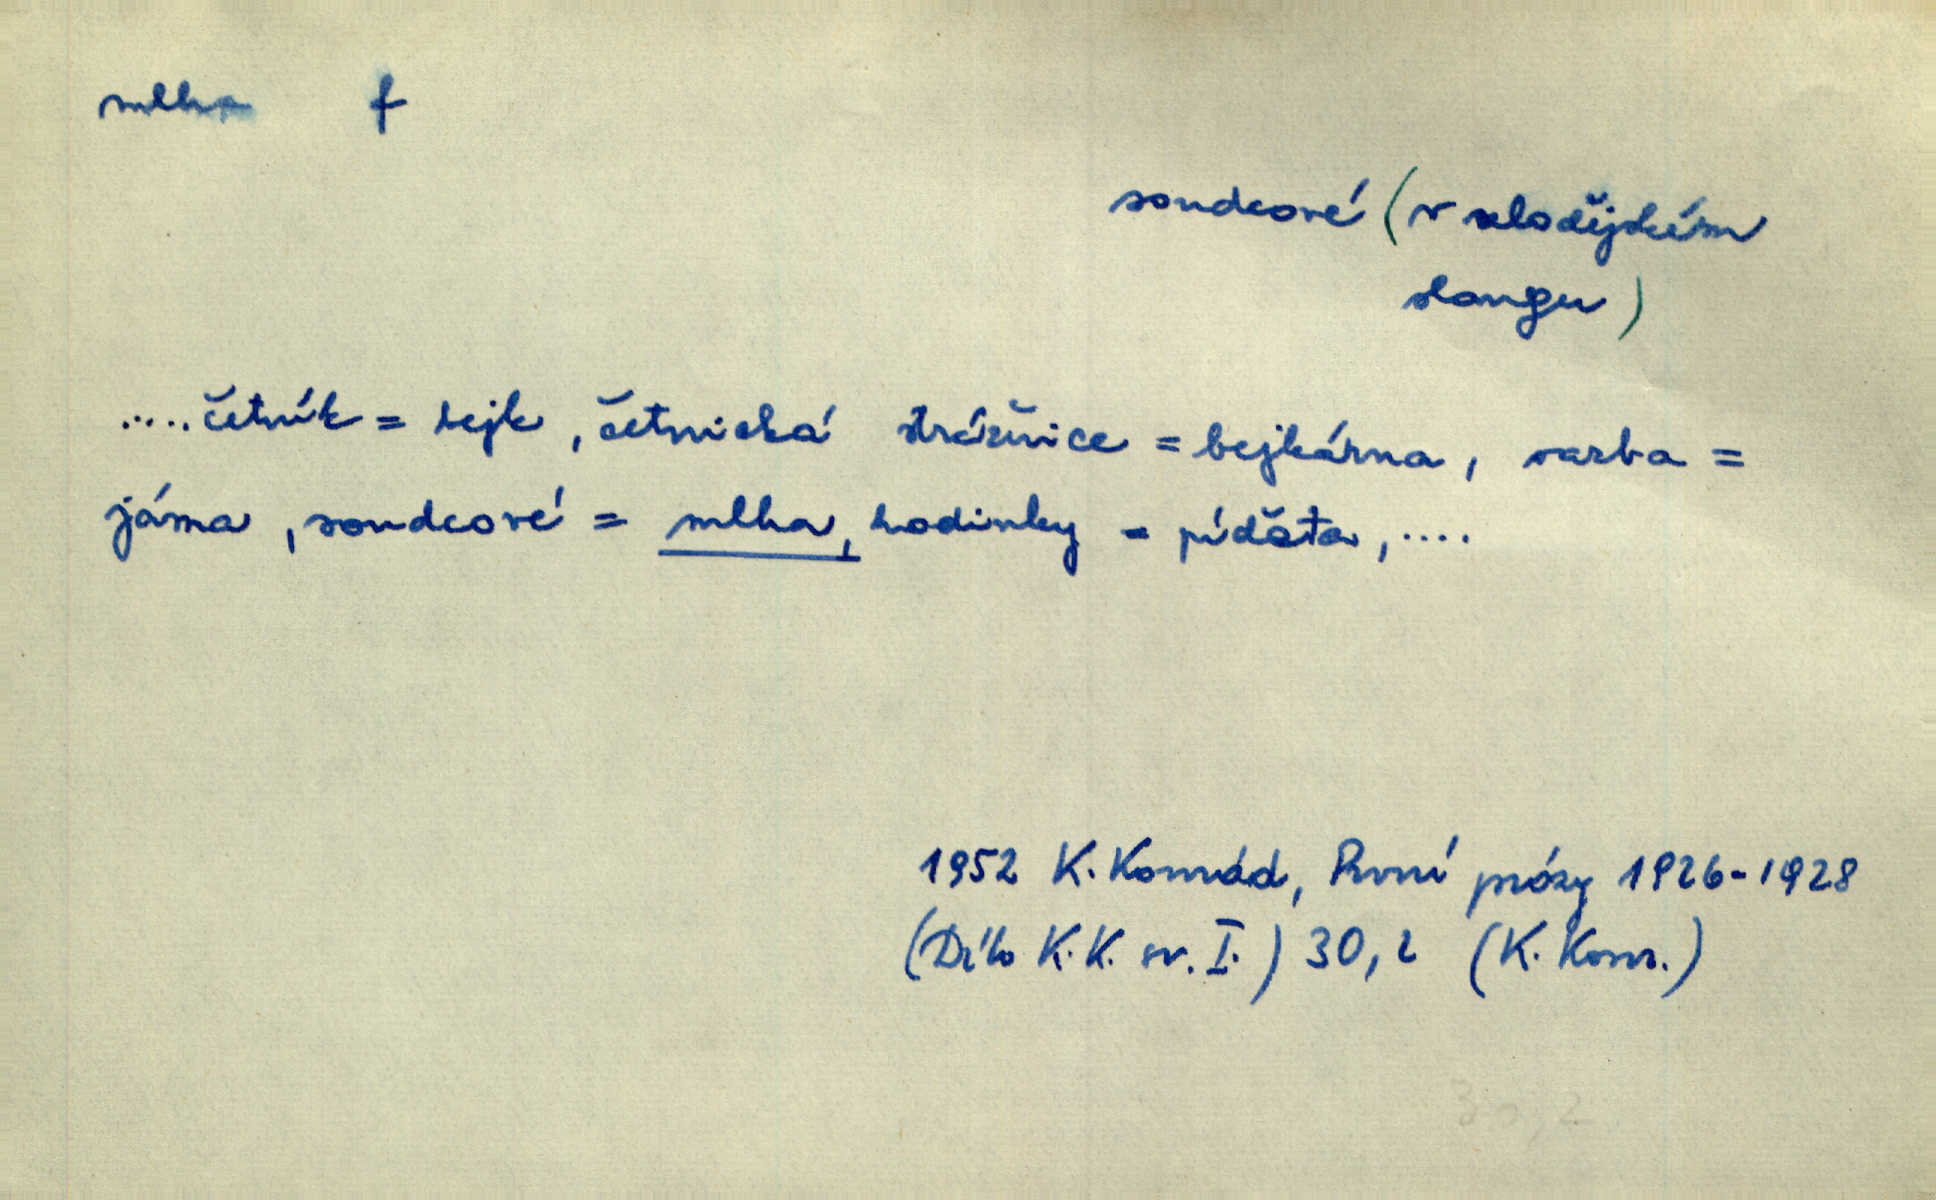 mlha f
soudcové (v zlodějském
slangu)
.....četník = bejk, četnická strážnice = bejkárna, vazba =
jáma, soudcové = mlha, hodinky =
1952 K. Konrád, První prózy 1926-1928
(Dílo K.K. sv. I.) 30,2 (K. Konr.)
30,2